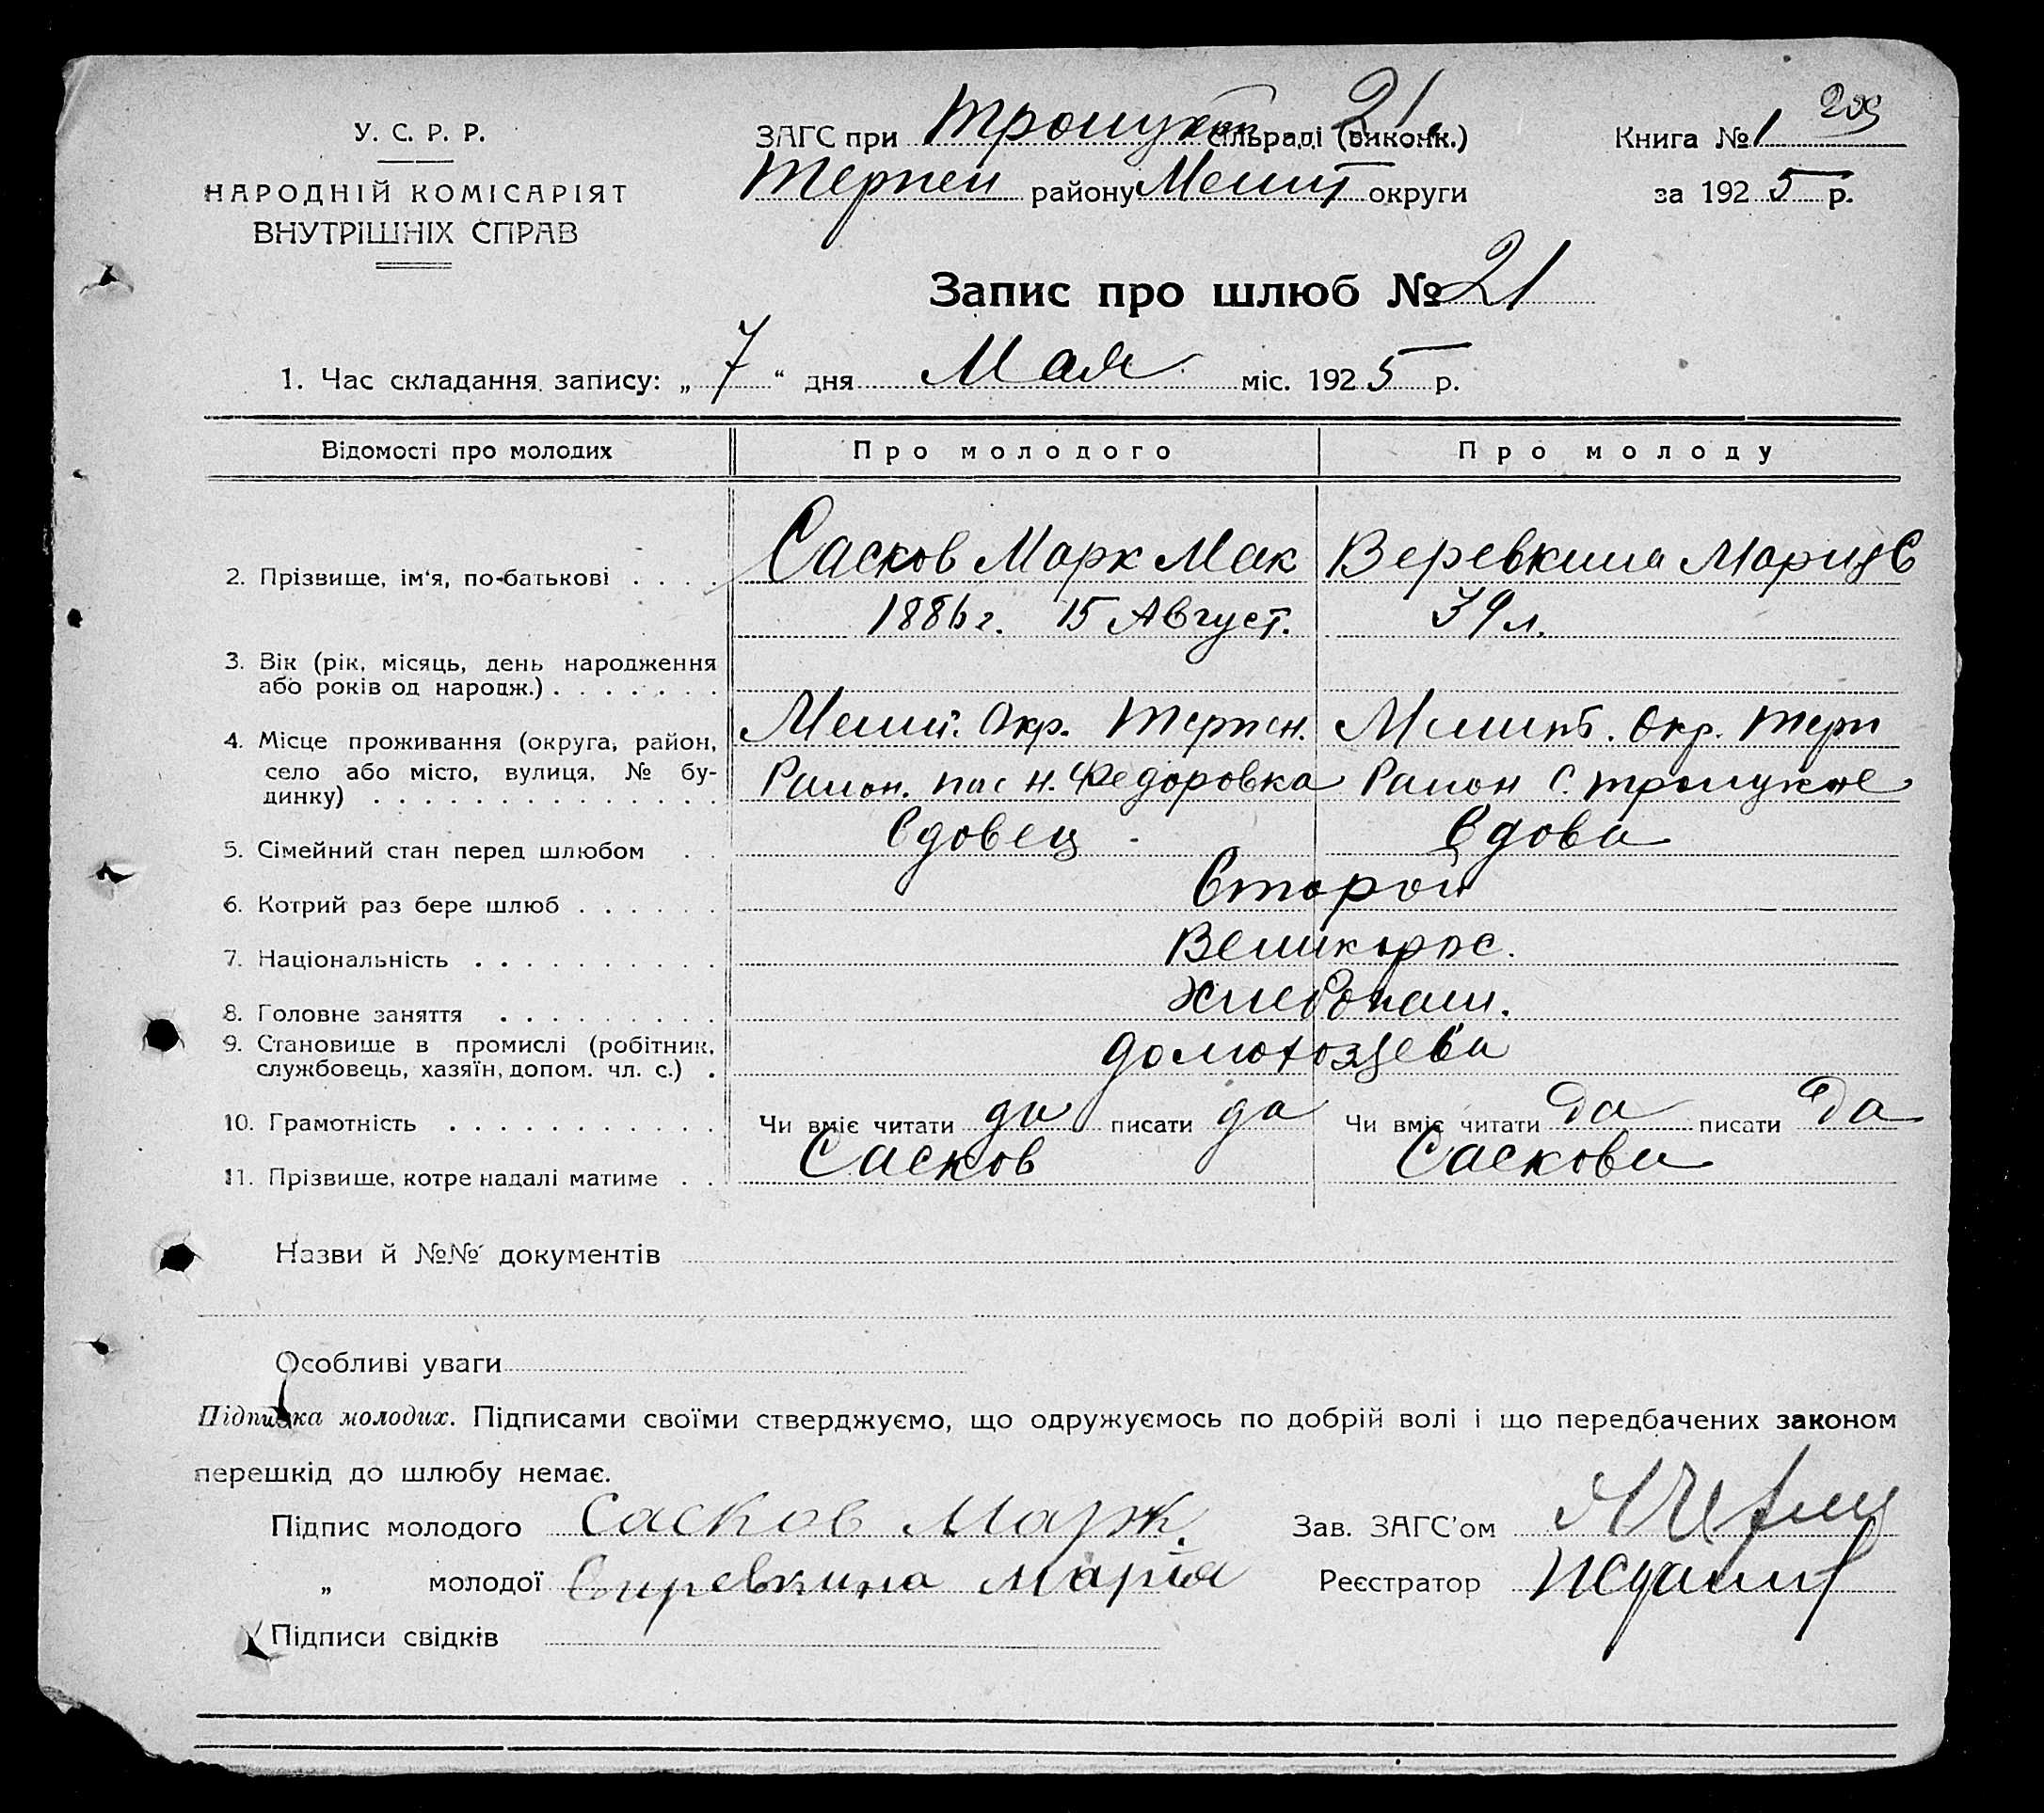 У. С. Р. Р.
НАРОДНІЙ КОМІСАРІЯТ
ВНУТРІШНІХ СПРАВ
ЗАГС при Троицкой сільраді (виконк.) 21
Терпен району Мелит округи
Книга № 1
за 1925 р.
Запис про шлюб № 21
1. Час складання запису: „7“ дня Мая міс. 1925 р.
Відомості про молодих Про молодого Про молоду
2. Прізвище, ім'я, по-батькові . . . . Сасков Марк Мак Веревкина Мария Е
1886 г. 15 Август. 39 л.
3. Вік (рік, місяць, день народження
або років од народж.) . . . . . . .
4. Місце проживання (округа, район, Мелит. Окр. Терпен. Мелит. Окр. Терп
село або місто, вулиця, № бу-
динку) . . . . . . . . . . . . . . Раион. пос Н. Федоровка Раион С. Троицкое
5. Сімейний стан перед шлюбом . . вдовец вдова
6. Котрий раз бере шлюб . . . . . . второй
7. Національність . . . . . . . . . . Великорос.
8. Головне заняття . . . . . . . . . Хлебопаш.
9. Становище в промислі (робітник,
службовець, хазяїн, допом. чл. с.) . домохозяева
10. Грамотність . . . . . . . . . . . Чи вміє читати да писати да Чи вміє читати да писати да
11. Прізвище, котре надалі матиме . . Сасков Саскова
Назви й №№ документів
Особливі уваги
Підписка молодих. Підписами своїми стверджуємо, що одружуємось по добрій волі і що передбачених законом
перешкід до шлюбу немає.
Підпис молодого Сасков Марк. Зав. ЗАГС'ом
„ молодої Виревкина Мария Реєстратор
Підписи свідків